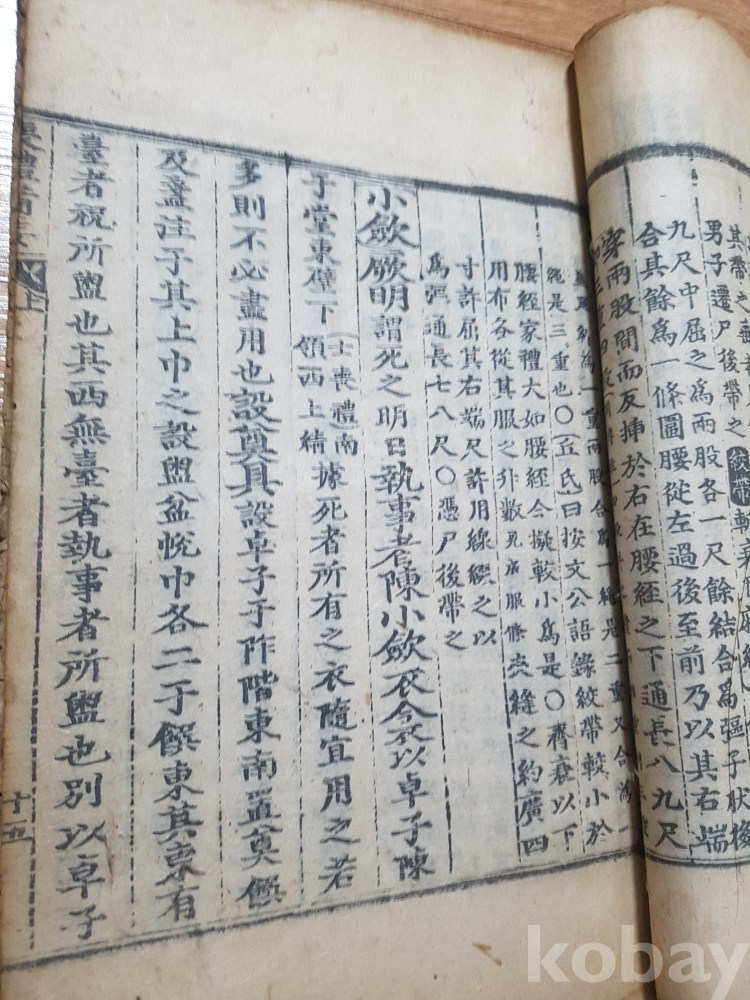 其帶之垂者
男子遷尸後帶之絞帶斬衰
九尺中屈之爲兩股各一尺餘結合爲彄子狀後
合其餘爲一條圍腰從左過後至前乃以其右端
穿兩股間而反揷於右在腰絰之下通長八九尺
爲一重兩股合爲一繩是二重又合爲一
繩是三重也○(丘氏)曰按文公語錄絞帶較小於
腰絰家禮大如腰絰今擬較小爲是○齊衰以下
用布各從其服之升數見成服條夾縫之約廣四
寸許屈其右端尺許用線綴之以
爲彄通長七八尺○憑尸後帶之
小斂厥明謂死之明日執事者陳小斂衣衾以卓子陳
于堂東壁下(士喪禮)南領西上綪據死者所有之衣隨宜用之若
多則不必盡用也設奠具設卓子于阼階東南置奠饌
及盞注于其上巾之設盥盆帨巾各二于饌東其東有
臺者祝所盥也其西無臺者執事者所盥也別以卓子
喪禮備要 上 十五